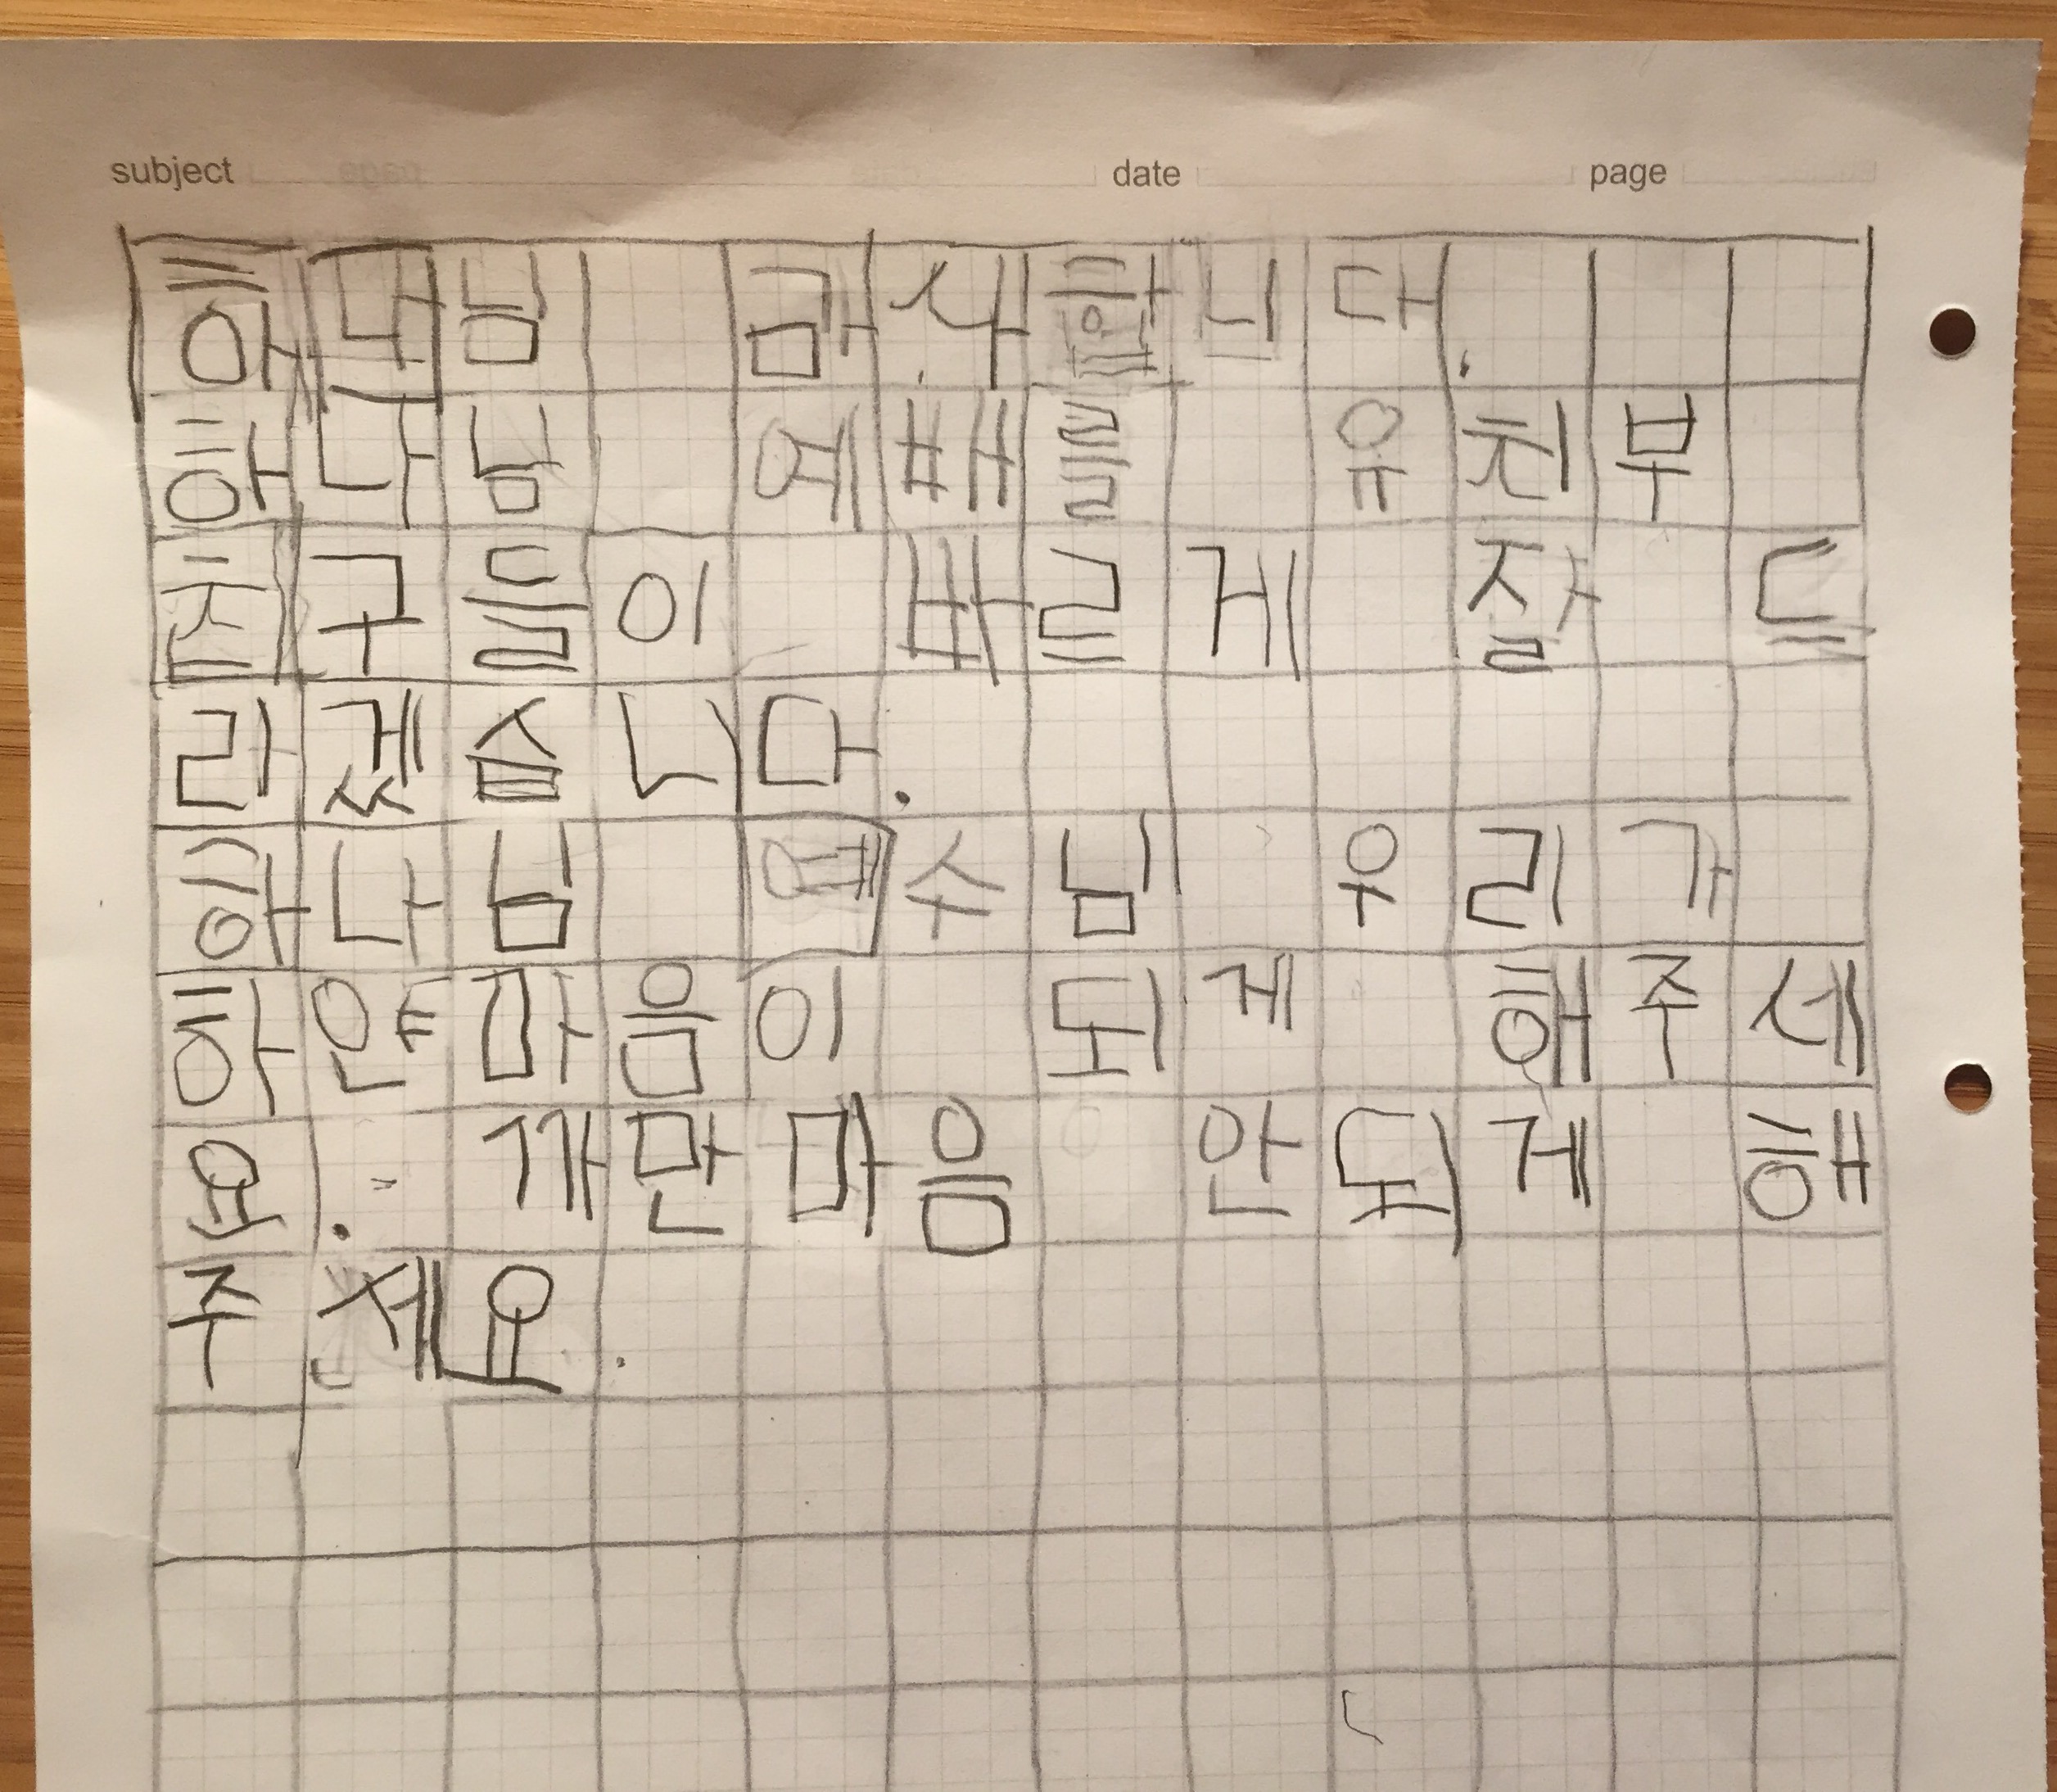 subject date page
하나님 감사합니다.
하나님 예배를 유치부
친구들이 빠르게 잘 드
리겠습니다.
하나님 예수님 우리가
하얀마음이 되게 해주세
요. 깨만마음 안되게 해
주세요.